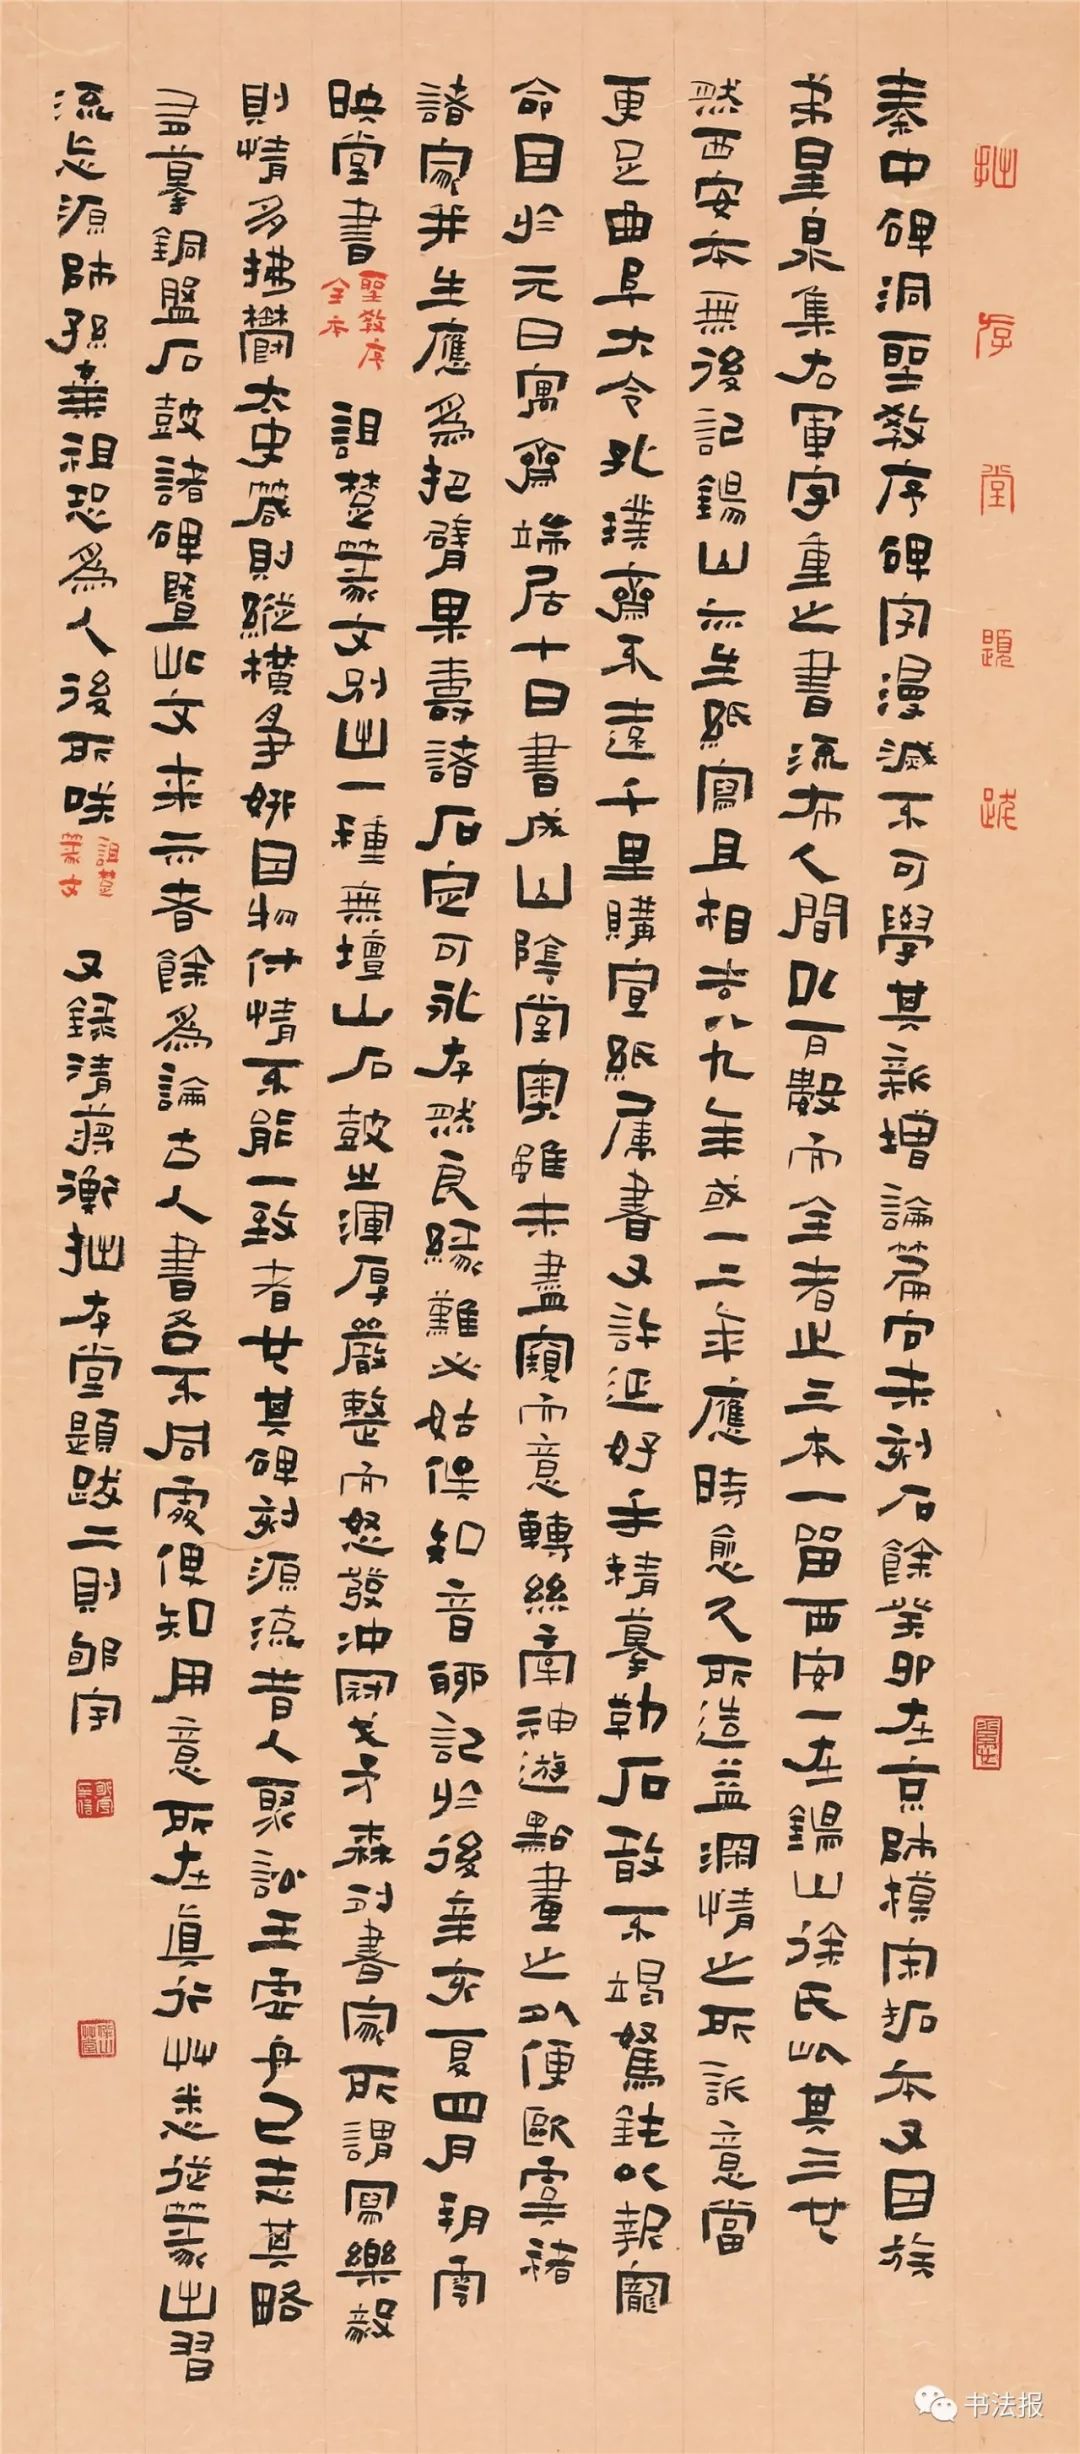 拙存堂題跋
秦中碑洞聖教序碑字漫滅不可學其新增論篇向未刻石餘癸卯在京師摸宋拓本又因族
弟星泉集右軍字重之書流布人間以百數而全者止三本一留西安一在錫山徐氏此其三也
然西安本無後記錫山亦生紙寫且相去八九年或一二年應時愈久所造益深情之所訴意當
更足曲阜大令孔璞齋不遠千里購宣紙屬書又許延好手精摹勒石敢不竭駑鈍以報寵
命因於元日寓齋端居十日書成山陰堂奧雖未盡窺而意轉絲牽神遊點畫之外便歐虞褚
諸家并生應為把臂果壽諸石定可永存然良緣難必姑俟知音聊記於後辛亥夏四月朔雨
映堂書
聖教序全本
詛楚篆文別出一種無壇山石鼓之渾厚嚴整而怒發沖冠戈矛森列書家所謂寫樂毅
則情多拂鬱太史箴則縱橫爭妍因物付情不能一致者也其碑刻源流昔人聚訟王虛舟已志其略
尋摹銅盤石鼓諸碑暨此文來示者餘為論古人書各不同處便知用意所在真行艸悉從篆出習
流忘源師孫棄祖恐為人後所嗤
詛楚篆文
又錄清蔣衡拙存堂題跋二則郇宇
书法报